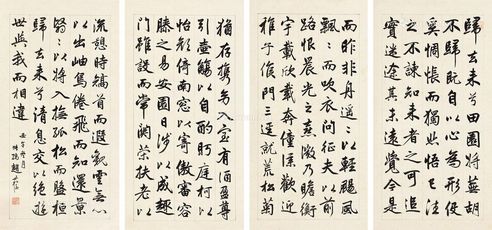 歸去來兮田園將蕪胡
不歸既自以心為形役
奚惆悵而獨悲悟已往
之不諫知來者之可追
實迷途其未遠覺今是
而昨非舟遙〻以輕颺風
飄〻而吹衣問征夫以前
路恨晨光之熹微乃瞻衡
宇載欣載奔僮僕歡迎
稚子候門三逕就荒松菊
猶存攜幼入室有酒盈尊
引壺觴以自酌眄庭柯以
怡顏倚南窗以寄傲審容
膝之易安園日涉以成趣
門雖設而常關策扶老以
流憩時矯首而遐觀雲無心
以出岫鳥倦飛而知還景
翳〻以將入撫孤松而盤桓
歸去來兮請息交以絕遊
世與我而相違